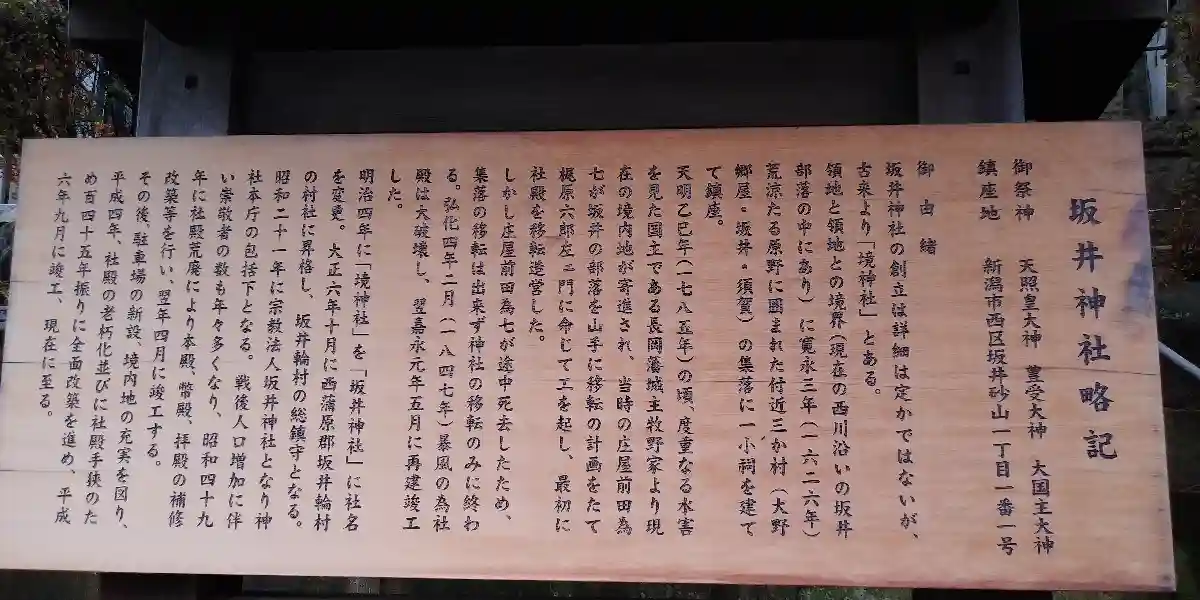 坂井神社略記
御祭神 天照皇大神 豊受大神 大国主大神
鎮座地 新潟市西区坂井砂山一丁目一番一号
御由緒
坂井神社の創立は詳細は定かではないが、
古来より「境神社」とある。
領地と領地との境界(現在の西川沿いの坂井
部落の中にあり)に寛永三年(一六二六年)
荒涼たる原野に囲まれた付近三か村(大野
郷屋・坂井・須賀)の集落に一小祠を建て
て鎮座。
天明乙巳年(一七八五年)の頃、度重なる水害
を見た国立である長岡藩城主牧野家より現
在の境内地が寄進され、当時の庄屋前田為
七が坂井の部落を山手に移転の計画をたて
梶原六郎左ェ門に命じて工を起し、最初に
社殿を移転造営した。
しかし庄屋前田為七が途中死去したため、
集落の移転は出来ず神社の移転のみに終わ
る。弘化四年二月(一八四七年)暴風の為社
殿は大破壊し、翌嘉永元年五月に再建竣工
した。
明治四年に「境神社」を「坂井神社」に社名
を変更。大正六年十月に西蒲原郡坂井輪村
の村社に昇格し、坂井輪村の総鎮守となる。
昭和二十一年に宗教法人坂井神社となり神
社本庁の包括下となる。戦後人口増加に伴
い崇敬者の数も年々多くなり、昭和四十九
年に社殿荒廃により本殿、幣殿、拝殿の補修
改築等を行い、翌年四月に竣工する。
その後、駐車場の新設、境内地の充実を図り、
平成四年、社殿の老朽化並びに社殿手狭のた
め百四十五年振りに全面改築を進め、平成
六年九月に竣工、現在に至る。